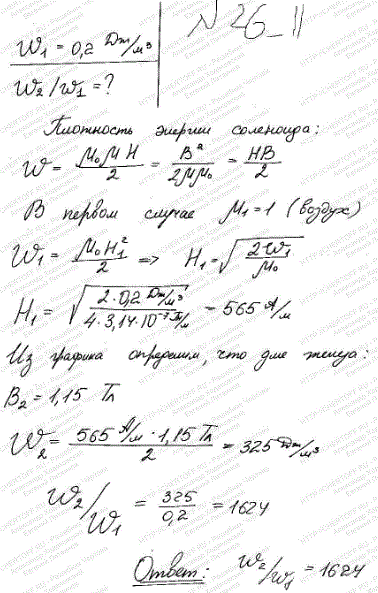 N 26_11
W₁ = 0,2 Дж/м³
W₂/W₁ = ?
Плотность энергии соленоида:
W = μ₀μH/2 = B²/2μμ₀ = HB/2
В первом случае μ₁ = 1 (воздух)
W₁ = μ₀H₁²/2 => H₁ = √(2W₁/μ₀)
H₁ = √(2·0,2 Дж/м³ / 4·3,14·10⁻⁷ Гн/м) = 565 А/м
Из графика определим, что для железа:
B₂ = 1,15 Тл
W₂ = 565 А/м · 1,15 Тл / 2 = 325 Дж/м³
W₂/W₁ = 325/0,2 = 1624
Ответ: W₂/W₁ = 1624